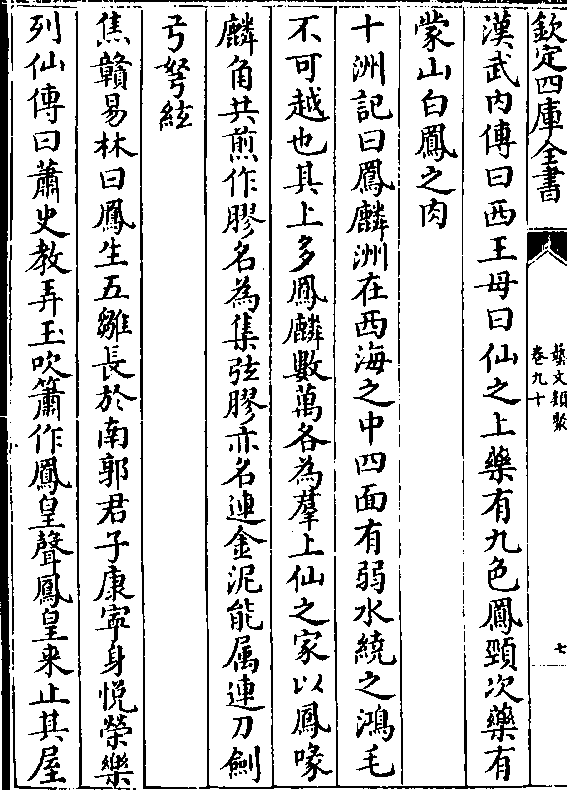 欽定四庫全書
藝文類聚
卷九十
七
漢武内傳曰西王母曰仙之上藥有九色鳳頸次藥有
蒙山白鳳之肉
十洲記曰鳳麟洲在西海之中四面有弱水繞之鴻毛
不可越也其上多鳳麟數萬各為羣上仙之家以鳳喙
麟角共煎作膠名為集弦膠亦名連金泥能属連刀劍
弓弩絃
焦贛易林曰鳳生五雛長於南郭君子康寧身悦榮樂
列仙傳曰蕭史教弄玉吹簫作鳳皇聲鳳皇来止其屋